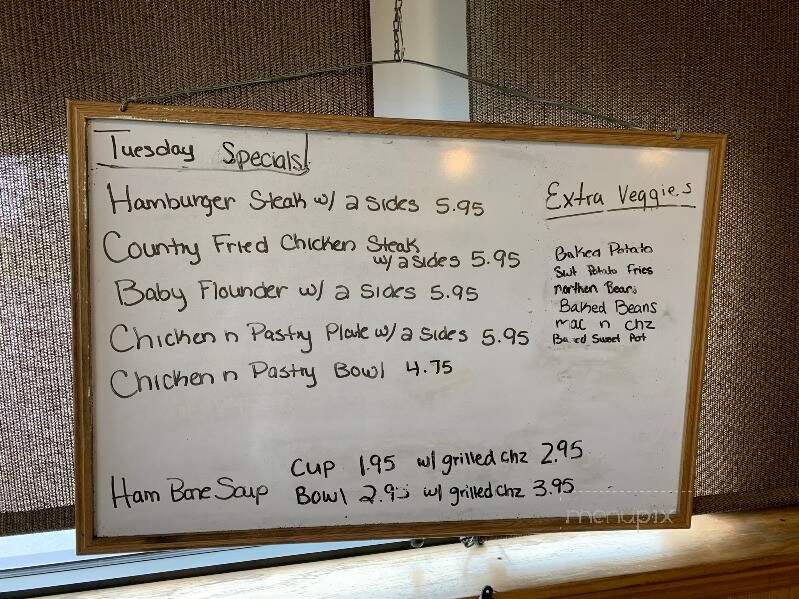 Tuesday Specials!
Hamburger Steak w/ 2 sides 5.95
Country Fried Chicken Steak
w/ 2 sides 5.95
Baby Flounder w/ 2 sides 5.95
Chicken n Pastry Plate w/ 2 sides 5.95
Chicken n Pastry Bowl 4.75
Extra Veggies
Baked Potato
Swt Potato Fries
northen Beans
Baked Beans
mac n chz
Baked Sweet Pot
Cup 1.95 w/ grilled chz 2.95
Ham Bone Soup Bowl 2.95 w/ grilled chz 3.95
menupix